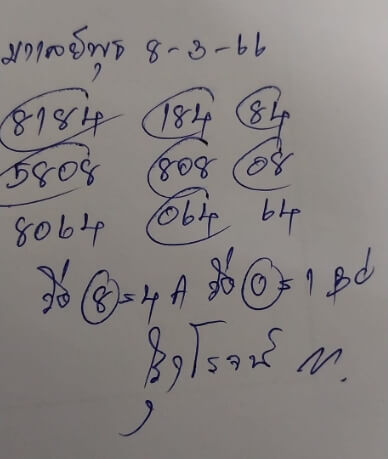 มาเลย์พุธ 8-3-66
8184 184 84
5808 808 08
8064 064 64
วิ่ง 8 = 4 A วิ่ง 0 = 1 Bd